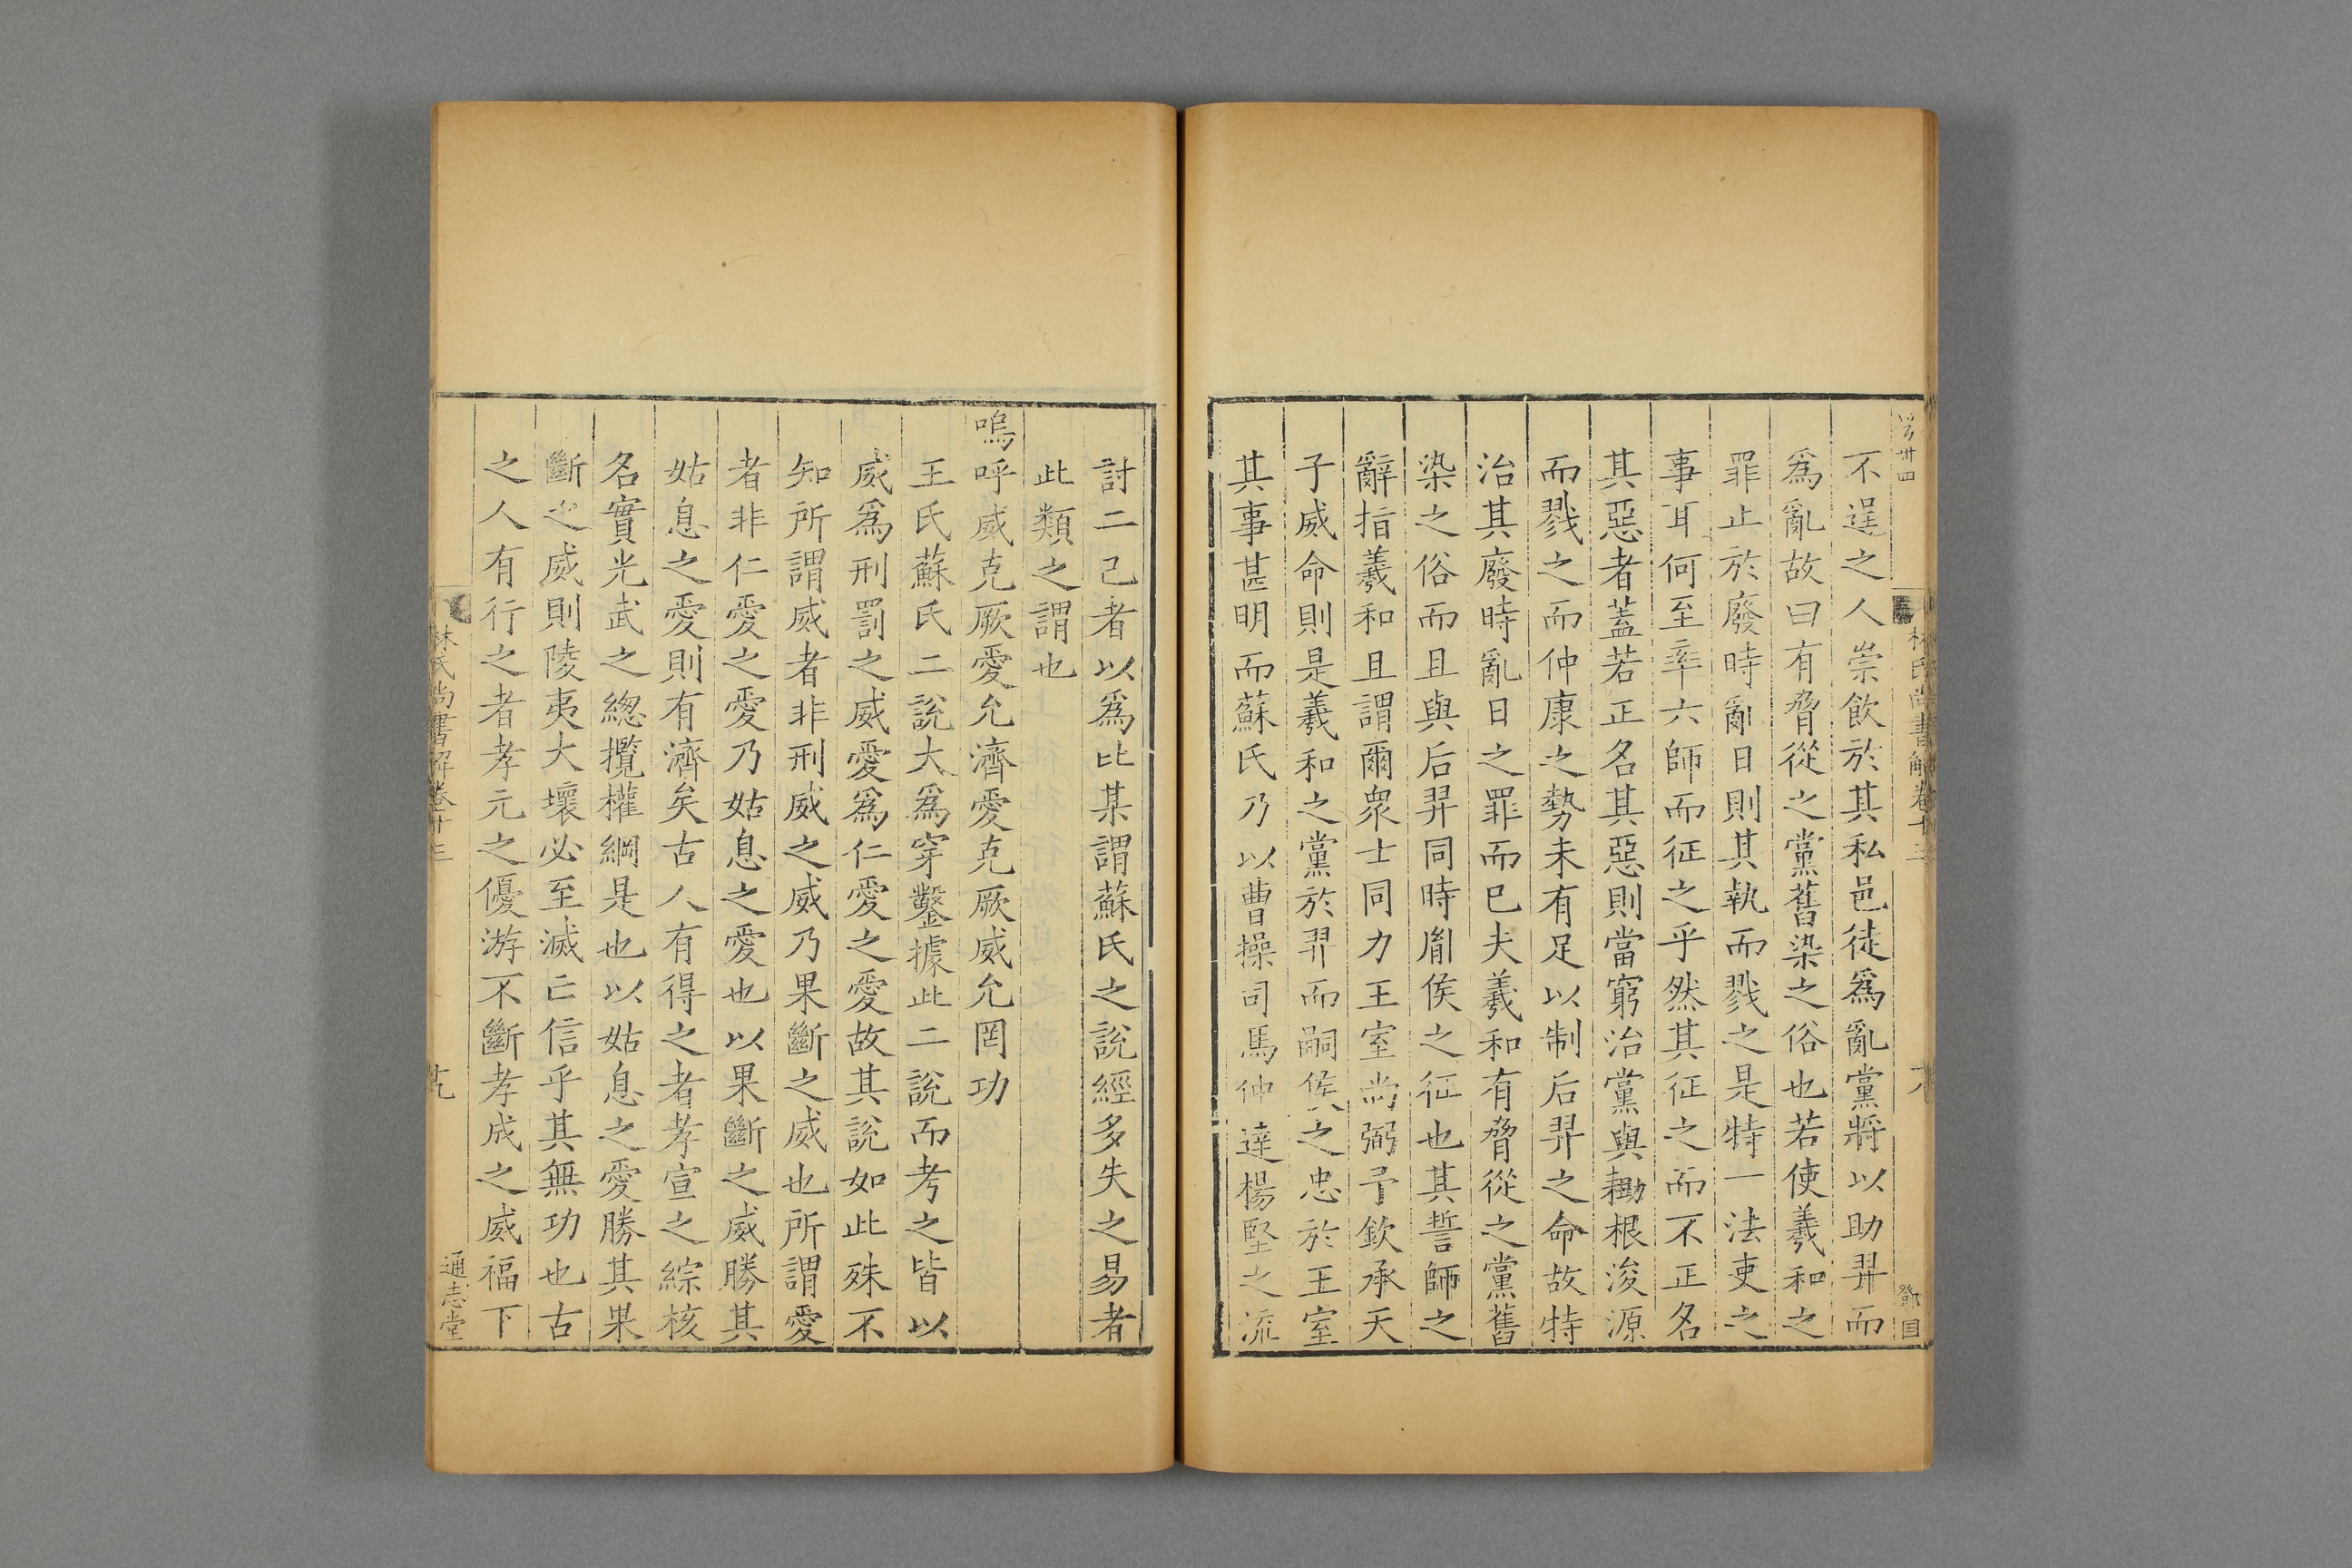 不逞之人崇飲於其私邑徒爲亂黨將以助羿而
爲亂故曰有脅從之黨舊染之俗也若使羲和之
罪止於廢時亂日則其執而戮之是特一法吏之
事耳何至率六師而征之乎然其征之而不正名
其惡者蓋若正名其惡則當窮治黨與耡根浚源
而戮之而仲康之勢未有足以制后羿之命故特
治其廢時亂日之罪而已夫羲和有脅從之黨舊
染之俗而且與后羿同時胤侯之征也其誓師之
辭指羲和且謂爾衆士同力王室尚弼予欽承天
子威命則是羲和之黨於羿而嗣侯之忠於王室
其事甚明而蘇氏乃以曹操司馬仲達楊堅之流
林氏尚書解卷十三
討二己者以爲比某謂蘇氏之說經多失之易者
此類之謂也
嗚呼威克厥愛允濟愛克厥威允罔功
王氏蘇氏二說大爲穿鑿據此二說而考之皆以
威爲刑罰之威愛爲仁愛之愛故其說如此殊不
知所謂威者非刑威之威乃果斷之威也所謂愛
者非仁愛之愛乃姑息之愛也以果斷之威勝其
姑息之愛則有濟矣古人有得之者孝宣之綜核
名實光武之緫攬權綱是也以姑息之愛勝其果
斷之威則陵夷大壞必至滅亡信乎其無功也古
之人有行之者孝元之優游不斷孝成之威福下
林氏尚書解卷十三
通志堂